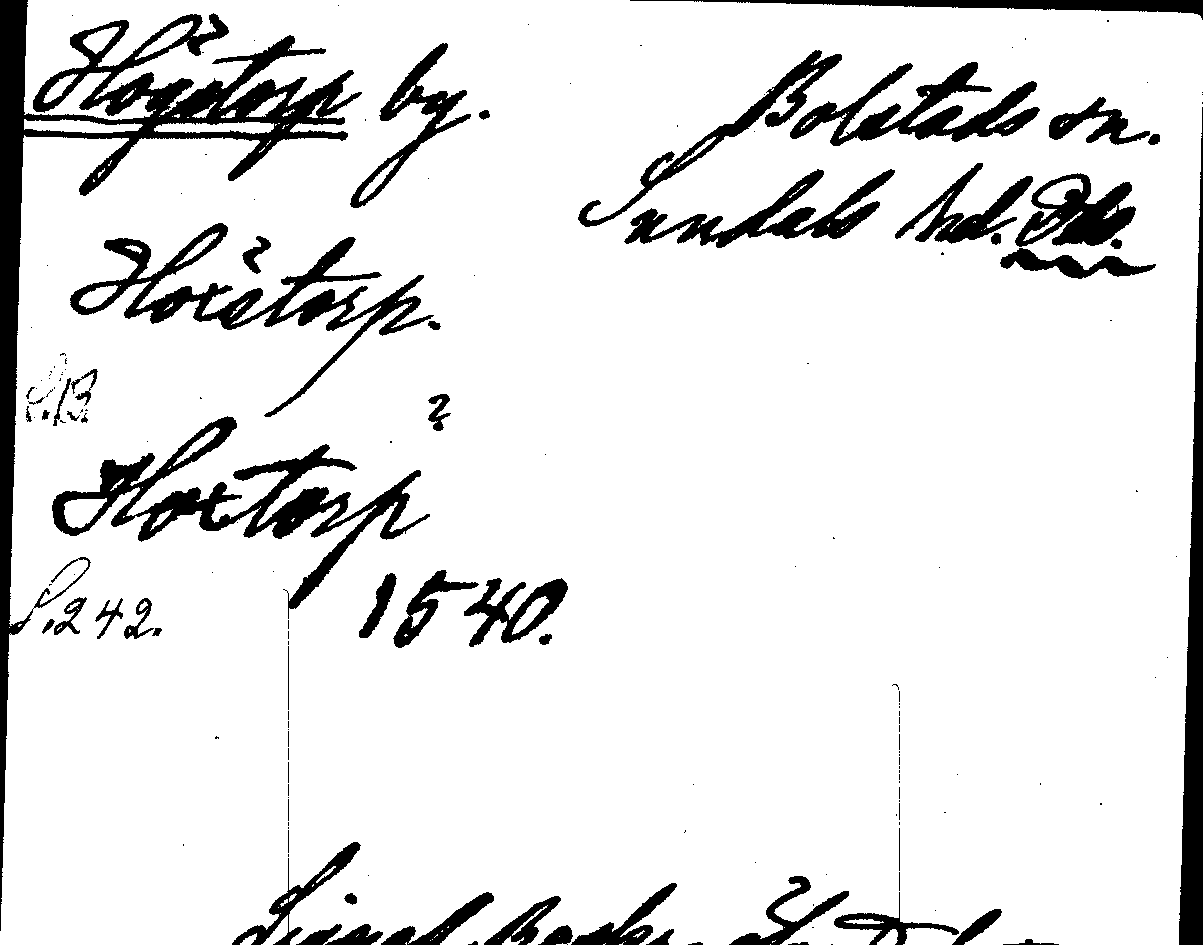 Högstorp by.
Bolstads sn.
Sundals hd. Dls.
Hoxstorp.
S. 13.
?
Hoxtorp
S. 242.
1540.